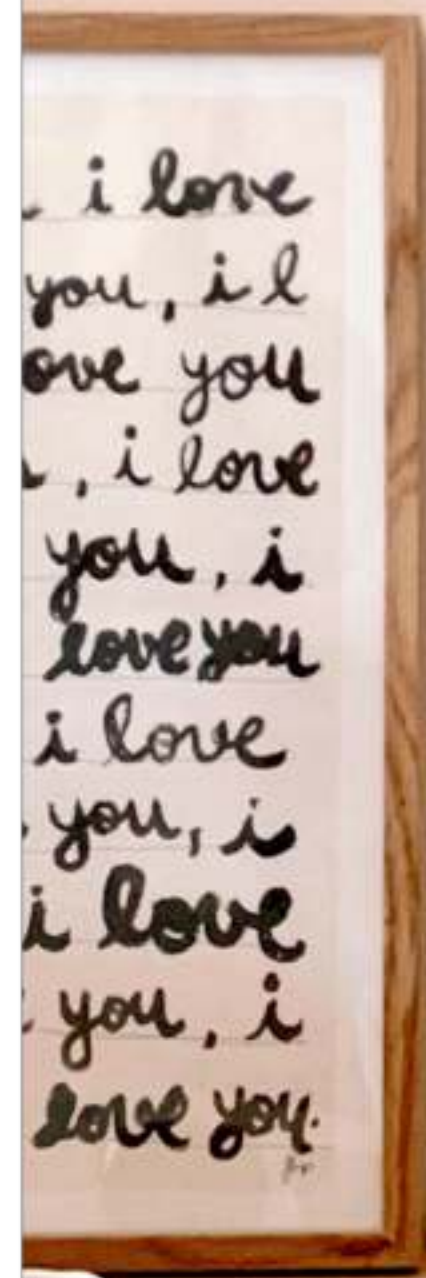 i love
you, i l
ove you
, i love
you, i
love you
i love
you, i
i love
you, i
love you.